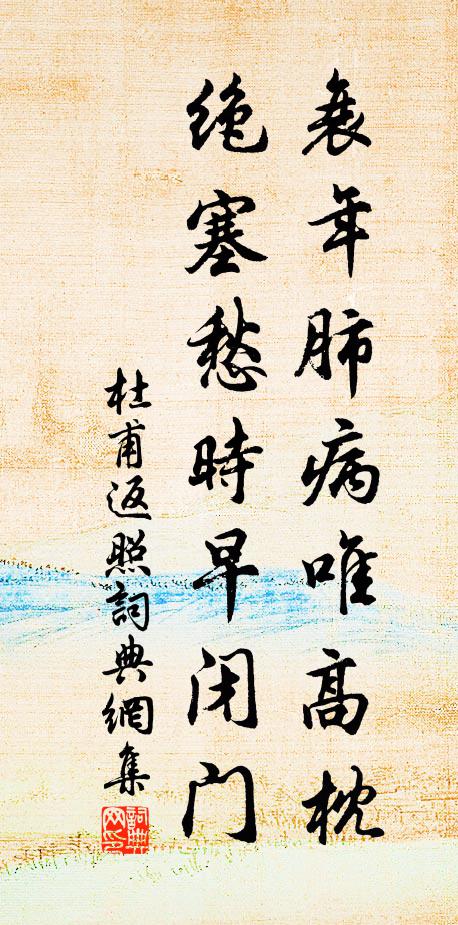 衰年肺病唯高枕
绝塞愁時早闭门
杜甫返照詞典網集
詞典網印